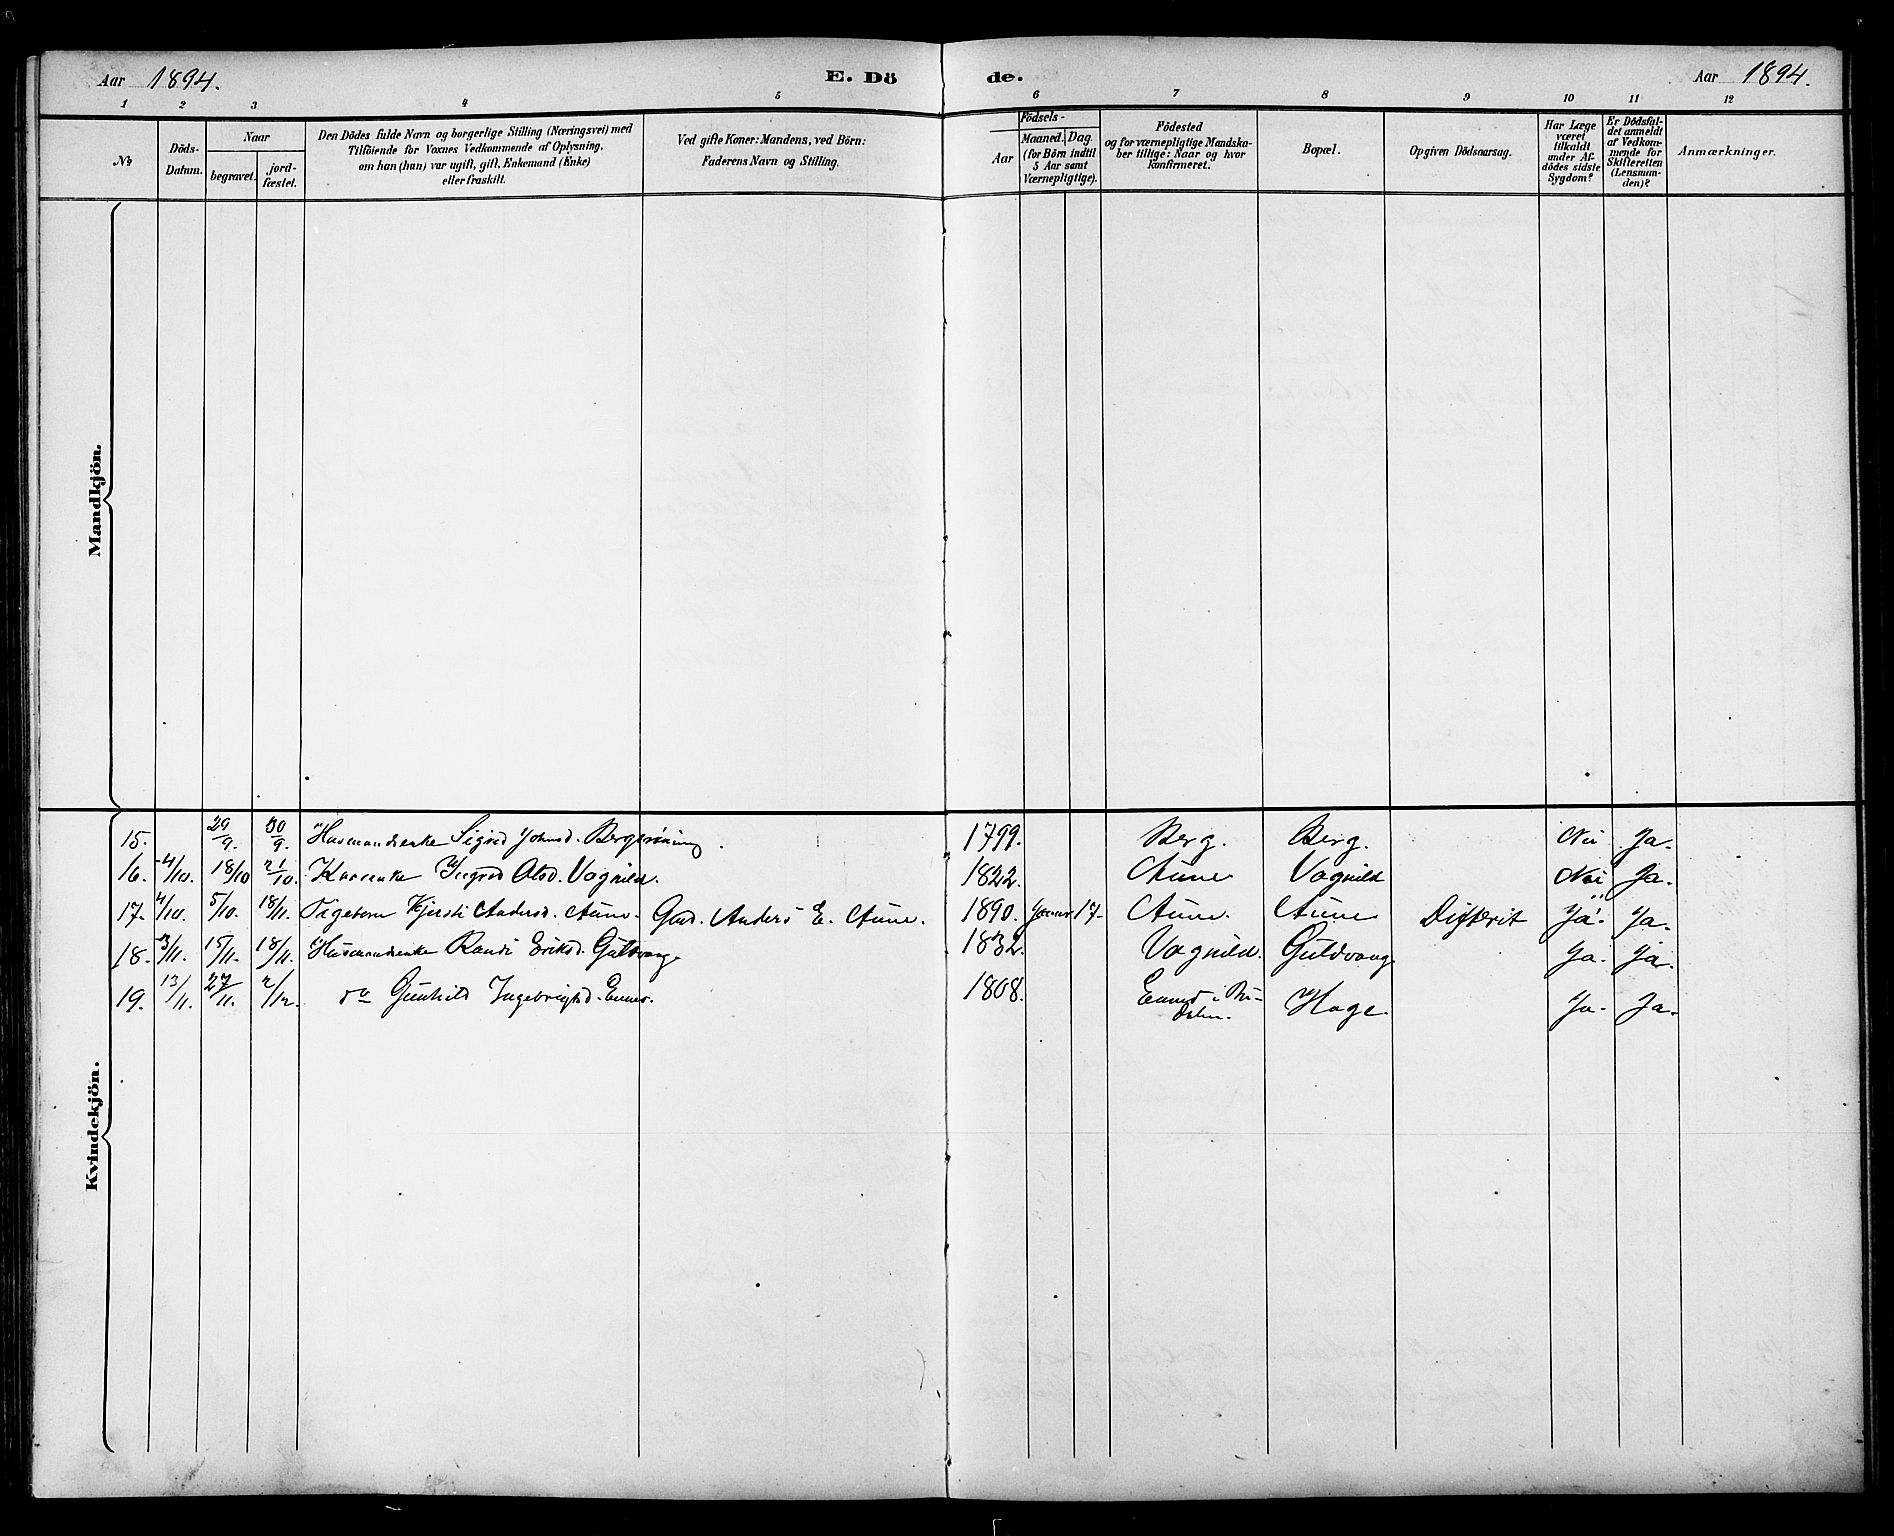 Aar 1894. E. Dö de. Aar 1894.
1 2 3 4 5 6 7 8 9 10 11 12
No
Döds-
Datum.
Naar
begravet.
jord-
fæstet.
Den Dödes fulde Navn og borgerlige Stilling (Næringsvei) med
Tilföiende for Voxnes Vedkommende af Oplysning,
om han (hun) var ugift, gift, Enkemand (Enke)
eller fraskilt.
Ved gifte Koner: Mandens, ved Börn:
Faderens Navn og Stilling.
Födsels-
Aar
Maaned. Dag.
(for Börn indtil
5 Aar samt
Værnepligtige).
Födested
og for værnepligtige Mandska-
ber tillige: Naar og hvor
konfirmeret.
Bopæl.
Opgiven Dödsaarsag.
Har Læge
været
tilkaldt
under Af-
dödes sidste
Sygdom?
Er Dödsfal-
det anmeldt
af Vedkom-
mende for
Skifteretten
(Lensman-
den)?
Anmærkninger.
Mandkjön.
Kvindekjön.
15. 29/9. 30/9. Husmandsenke Sigrid Johnsd. Bergsrönning. 1799. Berg. Berg. Nei Ja.
16. 4/10. 18/10 21/10. Kaarenke Ingrid Olsd. Vognild. 1822. Aune Vognild Nei Ja.
17. 4/10. 5/10. 18/11. Pigebarn Kjersti Andersd. Aune. Gad. Anders E. Aune. 1890. Januar 17. Aune. Aune Difterit Ja. Ja.
18. 3/11. 15/11. 18/11. Husmandsenke Randi Eriksd. Guldvang. 1832. Vognild. Guldvang Ja. Ja.
19. 13/11. 27/11. 2/12. do Gunhild Ingebrigtsd. Enmo. 1808. Enmo i Bu-
dalen. Hage. Ja. Ja.